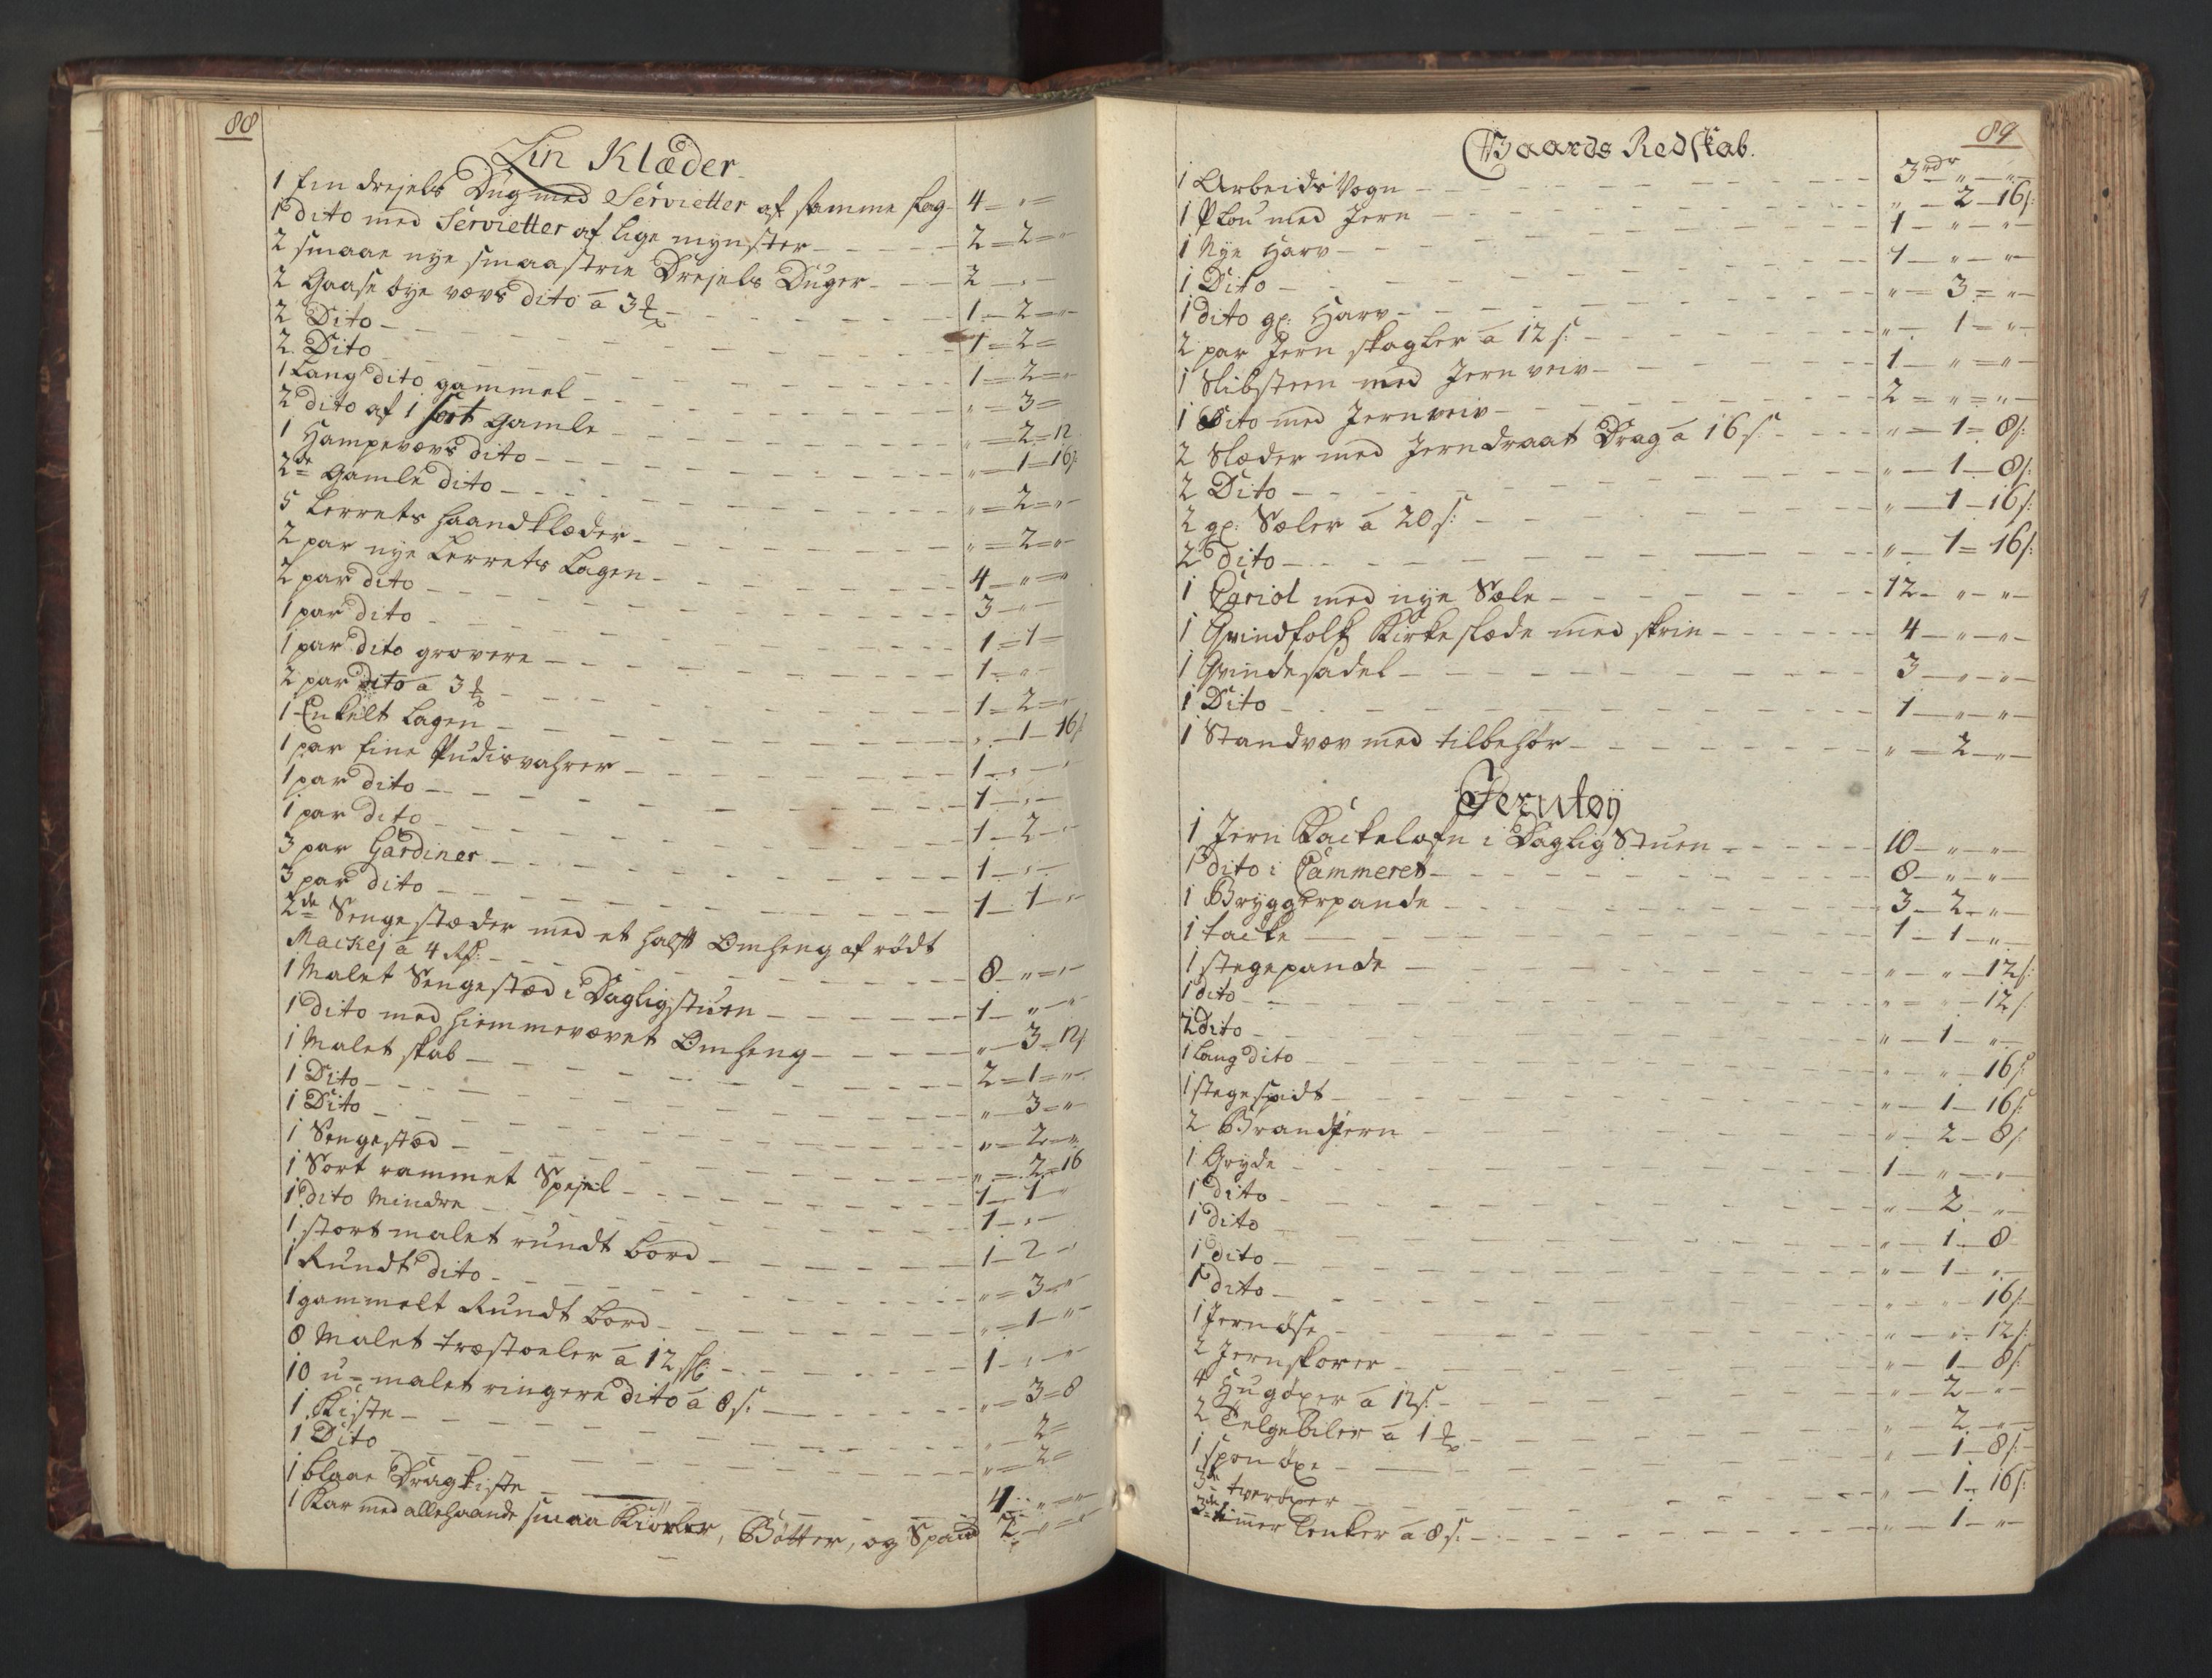 88
Lin Klæder
1 fin drejels Dug med Servietter af samme slag - 4 - " -
1 dito med Servietter af lige mynster - 2 - 2 - "
2 smaae nye smaastrie Drejels Duger - 2 - " -
2 Gaase øye vævs dito a 3 - 1 - 2 - "
2 Dito - 1 - 2 -
2 Dito - 1 - 2 - "
1 Lang dito gammel - " - 3 -
2 dito af 1 sort gamle - " - 2 - 12
1 Hampevævs dito - " - 1 - 16 s:
2de Gamle dito - " - 2 - "
5 Lerrets haandklæder - " - 2 - "
2 par nye Lerrets Lagen - 4 - " - "
2 par dito - 3 - " -
1 par dito - 1 - 1 -
1 par dito grovere - 1 - " -
2 par dito a 3 - 1 - 2 - "
1 Enkelt Lagen - " - 1 - 16 s
1 par fine Pudisvahrer - 1 - " - "
1 par dito - 1 - " -
1 par dito - 1 - 2 - "
3 par Gardiner - 1 - " -
3 par dito - 1 - 1 - "
2de Senge stæder med et halft Omheng af rødt
Mackej a 4 Rd: - 8 - " - "
1 Malet Sengestæd i Dagligstuen - 1 - " - "
1 dito med hiemmevævet Omheng - " - 3 - 12 s
1 Malet skab - 2 - 1 - "
1 Dito - " - 3 - "
1 Dito - " - 2 - "
1 Sengestæd - " - 2 - 16
1 Sort rammet Spejel - 1 - 1 - "
1 dito Mindre - 1 - " -
1 stort malet rundt bord - 1 - 2 - "
1 Rundt dito - " - 3 - "
1 gammelt Rundt bord - " - 1 - "
8 Malet træstoeler a 12 sk: - 1 - " - "
10 u-malet ringere dito a 8 s: - " - 3 - 8
1 Kiste - " - 2 -
1 Dito - " - 2 -
1 blaae Dragkiste - 4 - " - "
1 Kar med allehaande smaa Kiørler, Bøtter, og Spand 2 - " - "
89
Gaards Redskab.
1 Arbeids Vogn - 3 rdr " - "
1 Plou med Jern - " - 2 - 16 s:
1 Nye Harv - 1 - " - "
1 Dito - 1 - " - "
1 dito gl: Harv - " - 3 - "
2 par Jern skagler a 12 s: - " - 1 - "
1 Slibsteen med Jern veiv - 1 - " - "
1 Dito med Jernveiv - 2 - " - "
2 Slæder med Jerndraat Drag a 16 s. - " - 1 - 8 s:
2 Dito - " - 1 - 8 s:
2 gl: Sæler a 20 s: - " - 1 - 16 s:
2 dito - " - 1 - 16 s:
1 Cariol med nye Sæle - 12 - " - "
1 Qvindfolk Kirkeslæde med skrin - 4 - " - "
1 Qvindesadel - 3 - " - "
1 Dito - 1 - " - "
1 Standvæv med tilbehør - " - 2 - "
Jerntøy
1 Jern Kackelofn i Daglig Stuen - 10 - " - "
1 dito i Cammeret - 8 - " - "
1 Bryggerpande - 3 - 2 - "
1 tacke - 1 - 1 - "
1 stegepande - " - " - 12 s:
1 dito - " - " - 12 s
2 dito - " - 1 - "
1 lang dito - " - " - 16 s
1 stegespidt - " - 1 - 16 s:
2 Brandjern - " - 2 - 8 s:
1 Gryde - 1 - " - "
1 dito - " - 2 - "
1 dito - " - 1 - 8
1 dito - " - 1 - "
1 dito - " - " - 16 s:
1 Jernøse - " - " - 12 s:
2 Jernskorer - " - 1 - 8 s:
4 Hugøxer a 12 s: - " - 2 - "
2 Telgebiler a 1 - " - 2 - "
1 spon øxe - " - 1 - 8 s:
3de tverøxer - " - 1 - 16 s:
3de timmer lenker a 8 s: - " - 1 - "